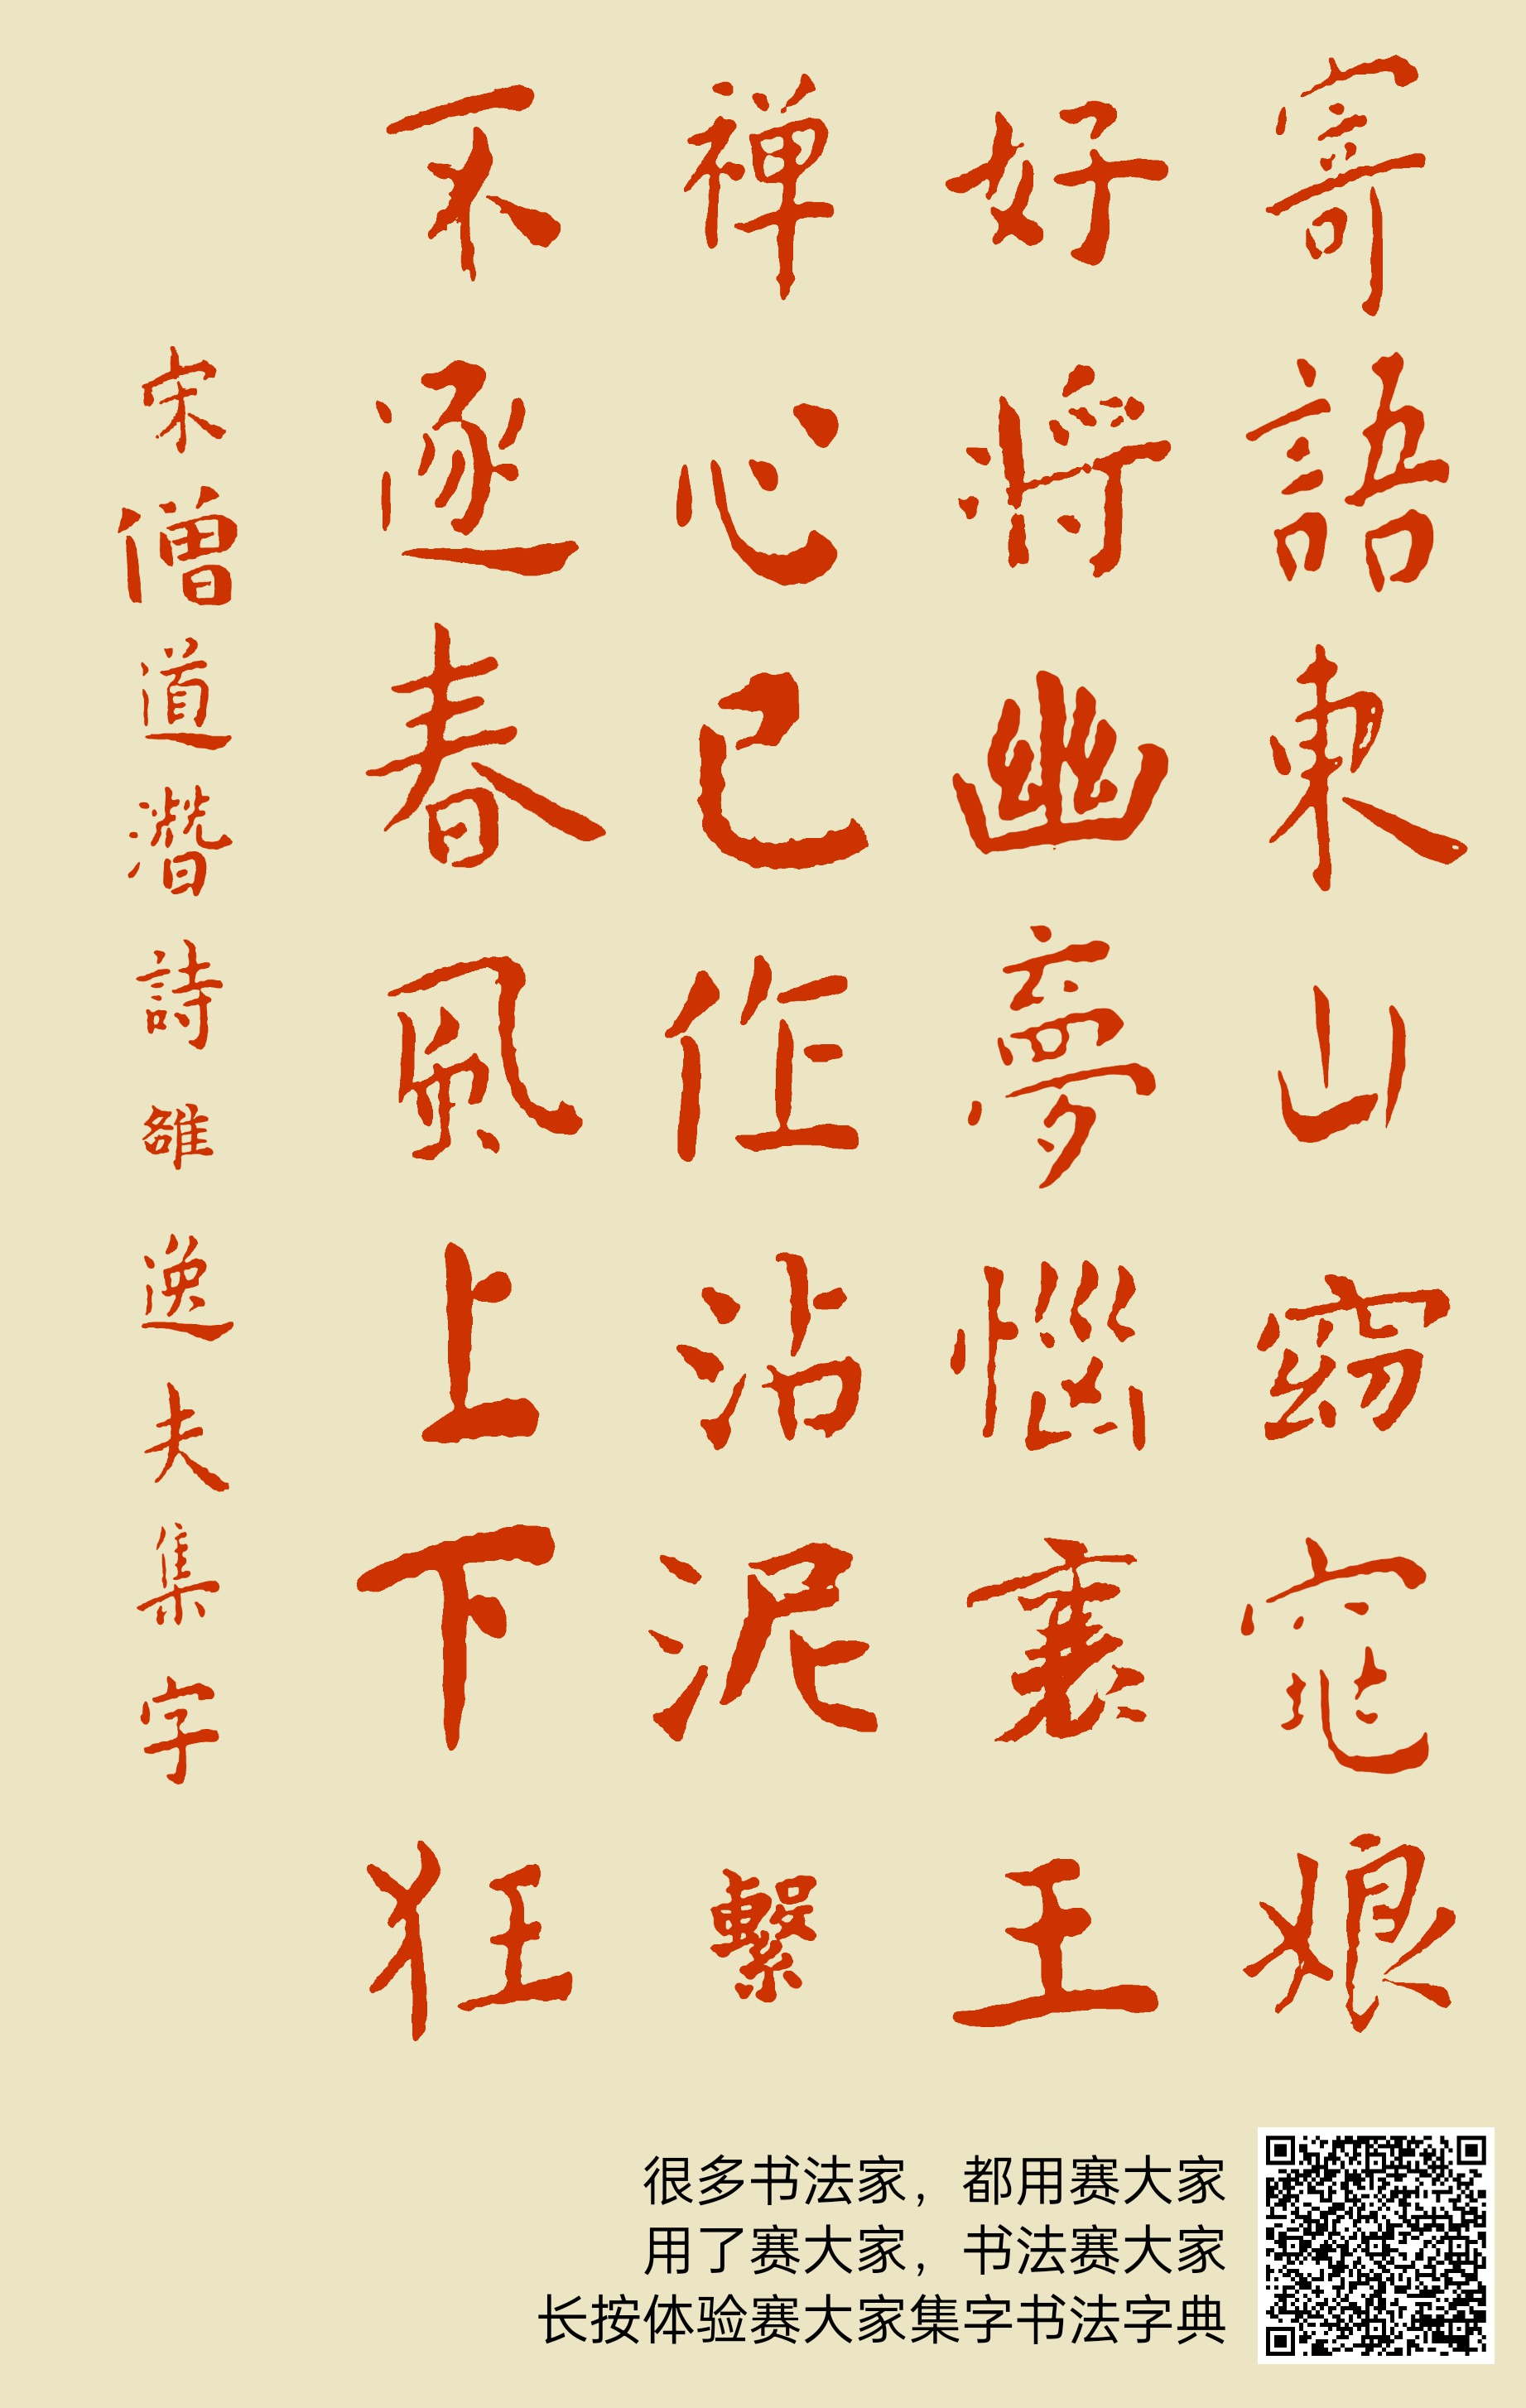 寄語東山窈窕娘
好將幽夢惱襄王
禅心已作沾泥繫
不逐春風上下狂
宋僧道潛詩雒逸夫集字
很多书法家，都用赛大家
用了赛大家，书法赛大家
长按体验赛大家集字书法字典